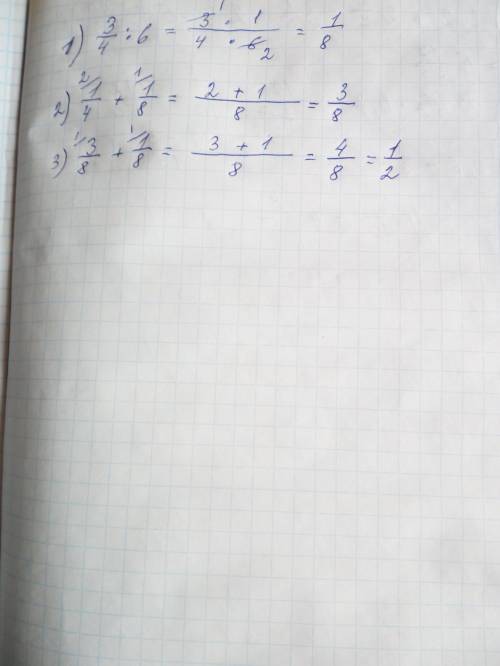 1) 3/4 : 6 = 3 · 1 / 4 · 6 = 1/8
2) 1/4 + 1/8 = 2 + 1 / 8 = 3/8
3) 3/8 + 1/8 = 3 + 1 / 8 = 4/8 = 1/2